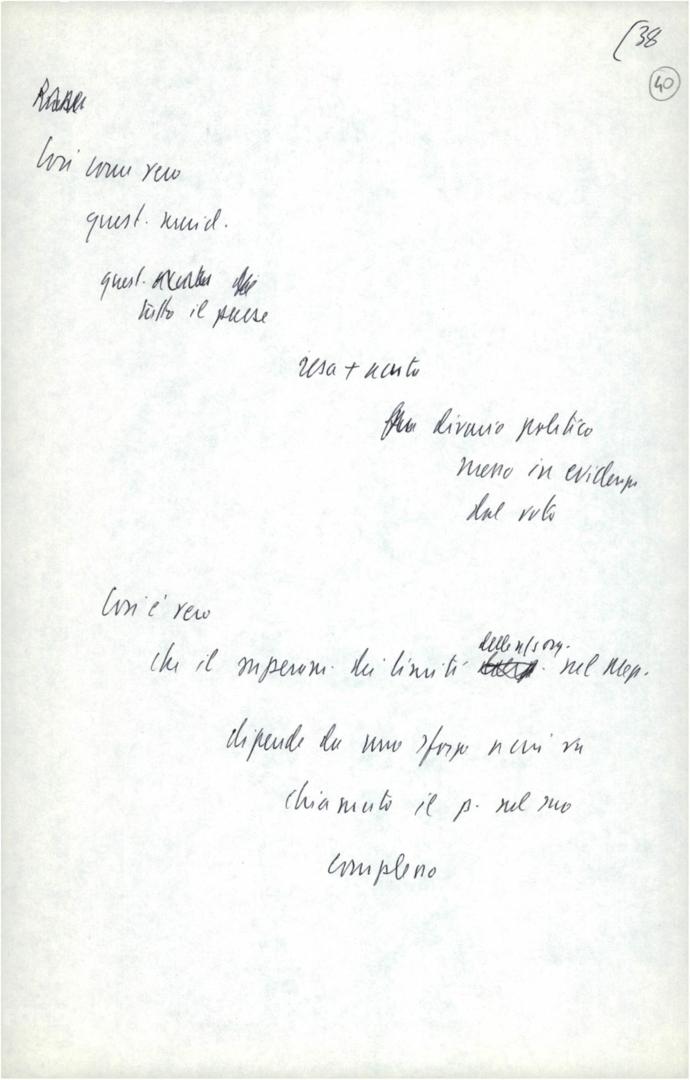 38
40
Così come vero
quest. merid.
quest.
tutto il paese
resa + acuta
divario politico
messo in evidenza
dal voto
Così è vero
dell n/s org.
che il superam. dei limiti nel Mezz.
dipende da uno sforzo a cui va
chiamato il p. nel suo
complesso